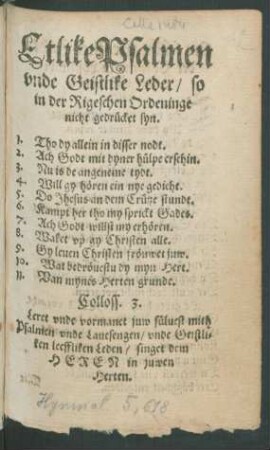 Etlike Psalmen
vnde Geistlike Leder / so
in der Rigeschen Ordeninge
nicht gedrücket syn.
1. Tho dy allein in disser nodt.
2. Ach Godt mit dyner hülpe erschin.
3. Nu is de angeneme tydt.
4. Will gy hören ein nye gedicht.
5. Do Jhesus an dem Crütze stundt.
6. Kampt her tho my sprickt Gades.
7. Ach Godt willst my erhören.
8. Waket vp gy Christen alle.
9. Gy leuen Christen fröuwet juw.
10. Wat bedröuestu dy myn Hert.
11. Van mynes Herten grunde.
Colloss. 3.
Leret vnde vormanet juw süluest mith
Psalmen vnde Lauesengen / vnde Geistli-
ken leeffliken Leden / singet dem
HEREN in juwen
Herten.
Hymnol. 5, 618